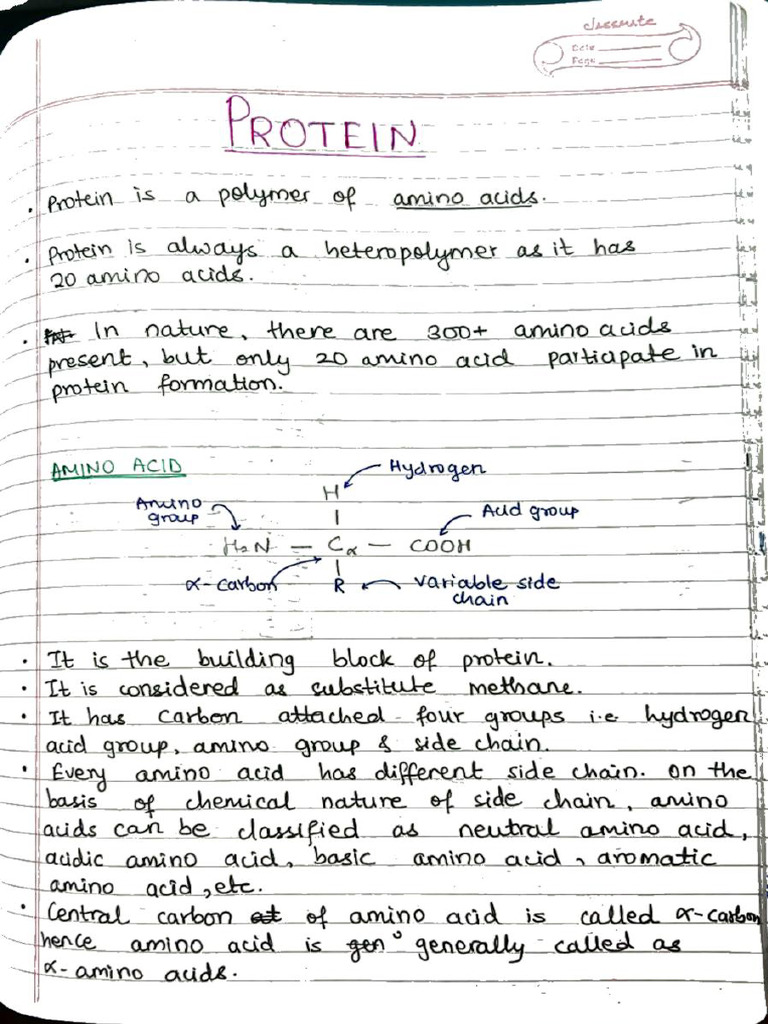 classmate
Date
Page
PROTEIN
• Protein is a polymer of amino acids.
• Protein is always a heteropolymer as it has
20 amino acids.
• In nature, there are 300+ amino acids
present, but only 20 amino acid participate in
protein formation.
AMINO ACID
Hydrogen
H
Amino
group
Acid group
H₂N — Cα — COOH
α-carbon
R
variable side
chain
• It is the building block of protein.
• It is considered as substitute methane.
• It has carbon attached four groups i.e hydrogen
acid group, amino group & side chain.
• Every amino acid has different side chain. On the
basis of chemical nature of side chain, amino
acids can be classified as neutral amino acid,
acidic amino acid, basic amino acid, aromatic
amino acid, etc.
• Central carbon of amino acid is called α-carbon
hence amino acid is gen generally called as
α-amino acids.